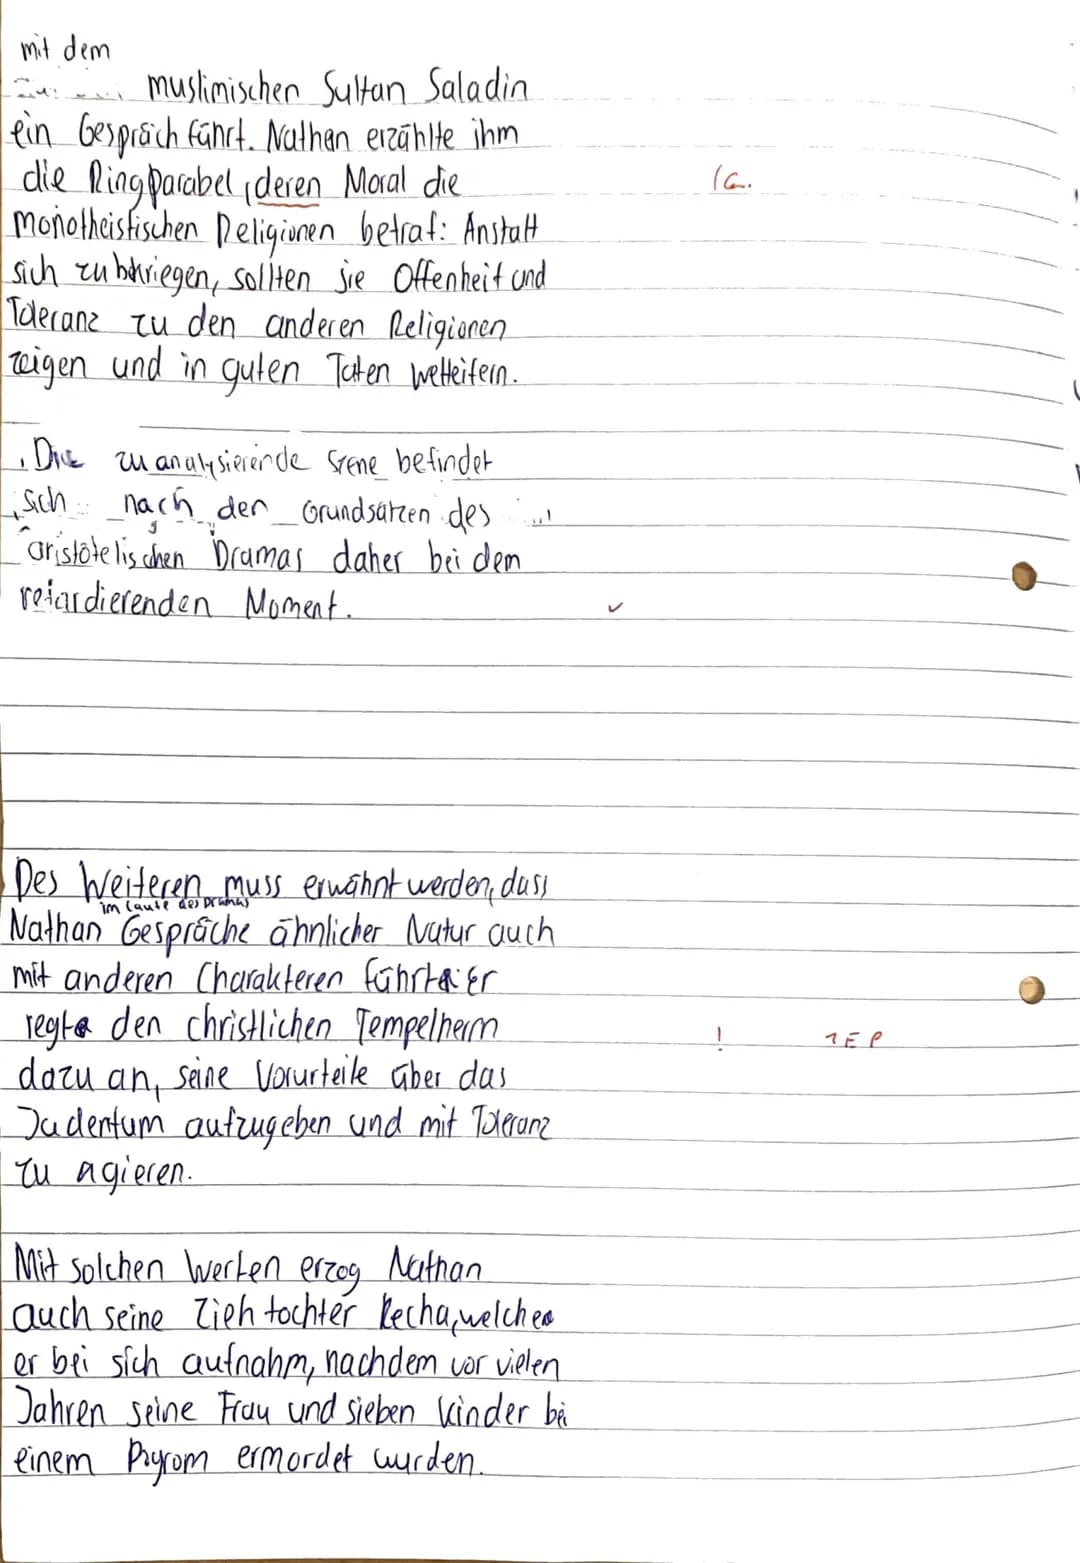 mit dem
muslimischen Sultan Saladin
ein Gespräch führt. Nathan erzählte ihm
die Ringparabel, deren Moral die
monotheistischen Religionen betraf: Anstatt
sich zu bekriegen, sollten sie Offenheit und
Toleranz zu den anderen Religionen
zeigen und in guten Taten wetteifern.
Die zu analysierende Szene befindet
sich nach den Grundsätzen des
aristotelischen Dramas daher bei dem
retardierenden Moment.
Des Weiteren muss erwähnt werden, dass
im Laufe des Dramas
Nathan Gespräche ähnlicher Natur auch
mit anderen Charakteren führte: Er
regte den christlichen Tempelherrn
! TEP
dazu an, seine Vorurteile über das
Judentum aufzugeben und mit Toleranz
zu agieren.
Mit solchen Werten erzog Nathan
auch seine Ziehtochter Recha, welche
er bei sich aufnahm, nachdem vor vielen
Jahren seine Frau und sieben Kinder bei
einem Pogrom ermordet wurden.